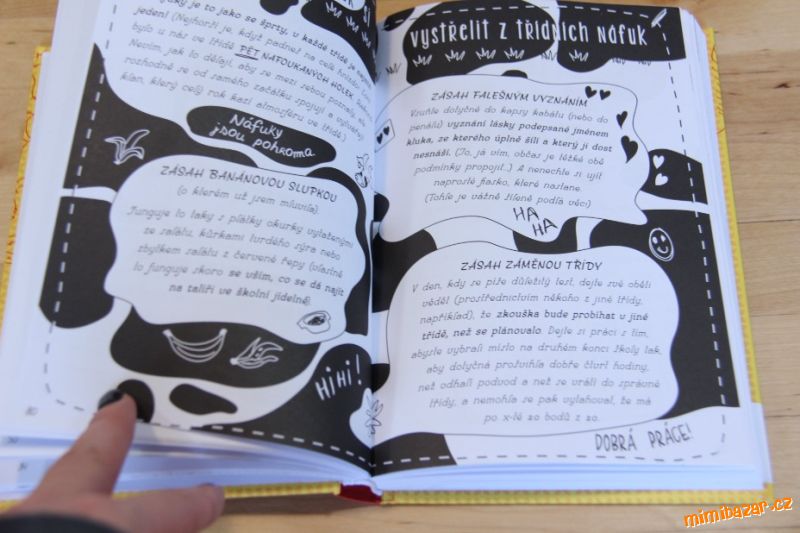 je to jako se šprty, v každé třídě je
jeden! (Nejhorší je, když padneš na celé hnízdo!
bylo u nás ve třídě PĚT NAFOUKANÝCH HOLEK.
Nevím, jak to dělají, aby se mezi sebou poznaly, ale
rozhodně se od samého začátku spojují a vytvářejí
klan, který celý rok kazí atmosféru ve třídě.)
Náfuky
jsou pohroma
ZÁSAH BANÁNOVOU SLUPKOU
(o kterém už jsem mluvila).
Funguje to taky s plátky okurky vytaženými
ze salátu, kůrkami tvrdého sýra nebo
zbytkem salátu z červené řepy (vlastně
to funguje skoro se vším, co se dá najít
na talíři ve školní jídelně).
HIHI!
vystřelit z třídních náfuk
ZÁSAH FALEŠNÝM VYZNÁNÍM
Vsuňte dotyčné do kapsy kabátu (nebo do
penálu) vyznání lásky podepsané jménem
kluka, ze kterého úplně šílí a který jí dost
nesnáší. (Jo, já vím, občas je těžké obě
podmínky propojit...) A nenechte si ujít
naprosté fiasko, které nastane.
(Tohle je vážně šílené podlá věc!)
HA
HA
ZÁSAH ZÁMĚNOU TŘÍDY
V den, kdy se píše důležitý test, dejte své oběti
vědět (prostřednictvím někoho z jiné třídy,
například), že zkouška bude probíhat v jiné
třídě, než se plánovalo. Dejte si práci s tím,
abyste vybrali místo na druhém konci školy tak,
aby dotyčná prošvihla dobře čtvrt hodiny,
než odhalí podvod a než se vrátí do správné
třídy, a nemohla se pak vytahovat, že má
po x-té 20 bodů z 20.
DOBRÁ PRÁCE!
mimibazar.cz